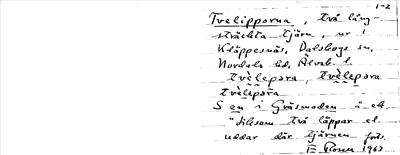 1-2
Tvelipporna, två lång-
sträckta tjärn, nr 1
Kläppesnäs, Dalskogs sn,
Nordals hd, Älvsb. l.
tvèlepora, tvèlepora
tvèlepora
S en i Gräsmoden å ek.
"Liksom två läppar el.
uddar där tjärnen
1963